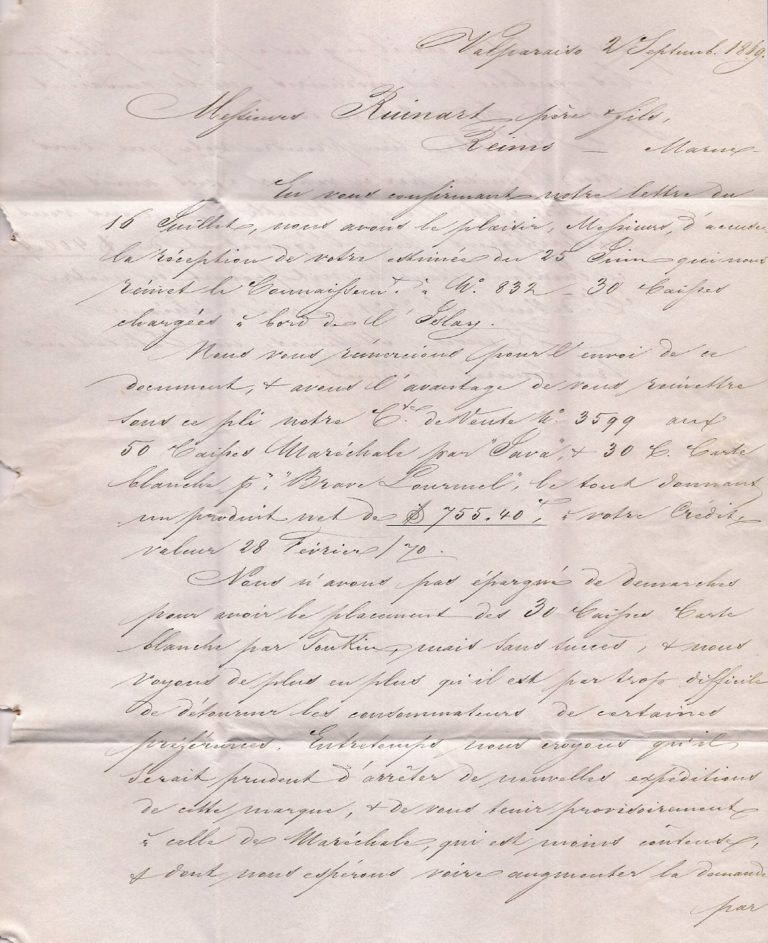 Valparaiso 2 Septemb. 1869.
Messieurs Ruinart père & fils,
Reims — Marne
En vous confirmant notre lettre du
16 Juillet, nous avons le plaisir, Messieurs, d'accuser
la réception de votre estimée du 25 Juin qui nous
rémet le Connaissemt. à No. 832 – 30 Caisses
chargées à bord de l'Islay.
Nous vous rémercions pour l'envoi de ce
document, & avons l'avantage de vous remettre
sous ce pli notre Cte. de Vente No. 3599 aux
50 Caisses Maréchale par "Java", & 30 C. Carte
blanche pr. "Brave Lourmel", le tout donnant
un produit net de $ 755.40 cs, à votre Crédit,
valeur 28 Février /70.
Nous n'avons pas épargné de demarches
pour avoir le placement des 30 Caisses Carte
blanche par Tonkin, mais sans succès, & nous
voyons de plus en plus qu'il est par trop difficile
de détourner les consommateurs de certaines
préférences. Entretemps nous croyons qu'il
serait prudent d'arrêter de nouvelles expéditions
de cette marque, & de vous tenir provisoirement
à celle de Maréchale, qui est moins côuteuse,
& dont nous espérons voire augmenter la demande
par